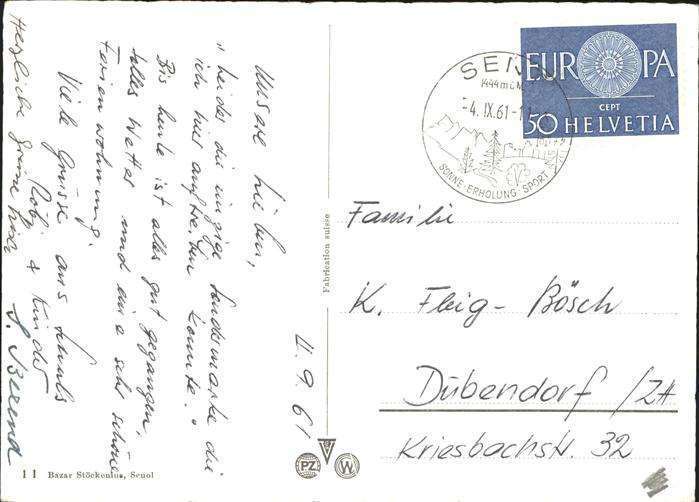 4.9.61
Unsere Lieben,
"leider die einzige Sondermarke die
ich hier auftreiben konnte."
Bis heute ist alles gut gegangen,
tolles Wetter und eine sehr schöne
Ferienwohnung.
Viele Grüsse aus
Roby & Kinder
Herzliche Grüsse
Fabrication suisse
PZ
W
11 Bazar Stöckenius, Scuol
1444 m
-4.IX.61-
SONNE-ERHOLUNG SPORT
EUROPA
CEPT
50 HELVETIA
Familie
K. Fleig-Bösch
Dübendorf /ZH
Kriesbachstr. 32